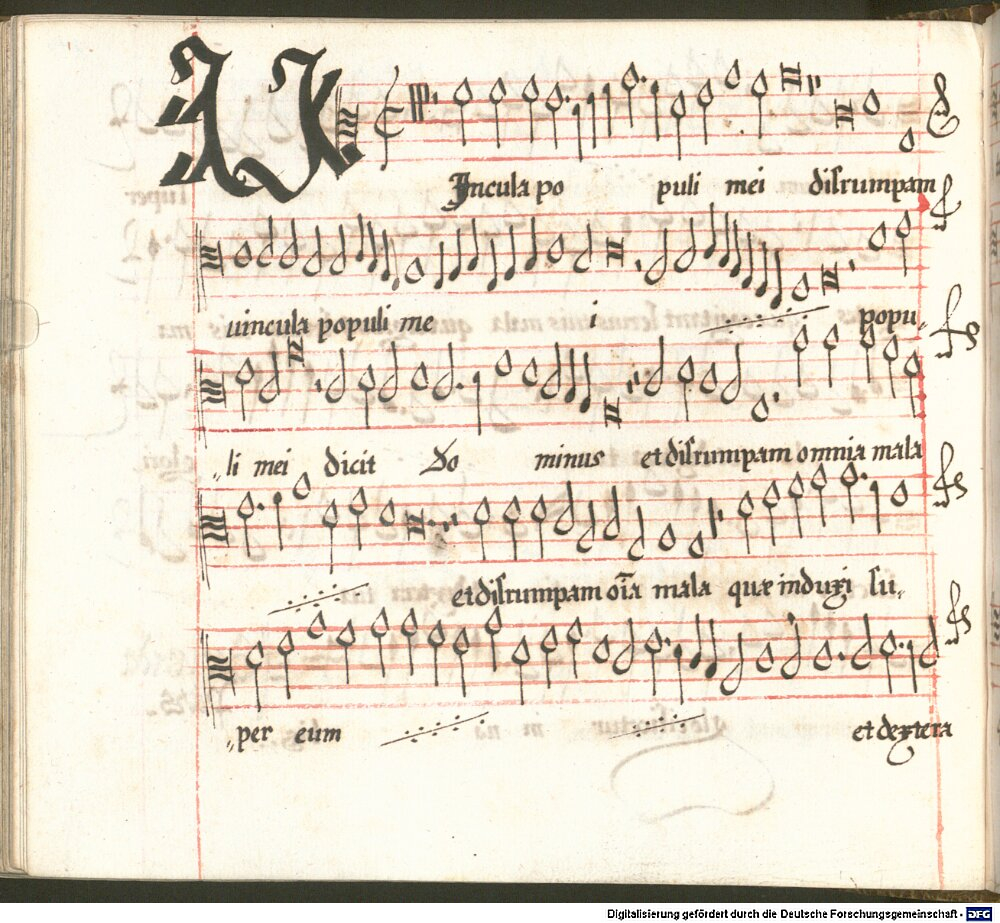 Vincula po puli mei disrumpam
uincula populi me i popu„
„li mei dicit Do minus et disrumpam omnia mala
et disrumpam oīa mala quæ induxi su„
„per eum et dextera
Digitalisierung gefördert durch die Deutsche Forschungsgemeinschaft - DFG